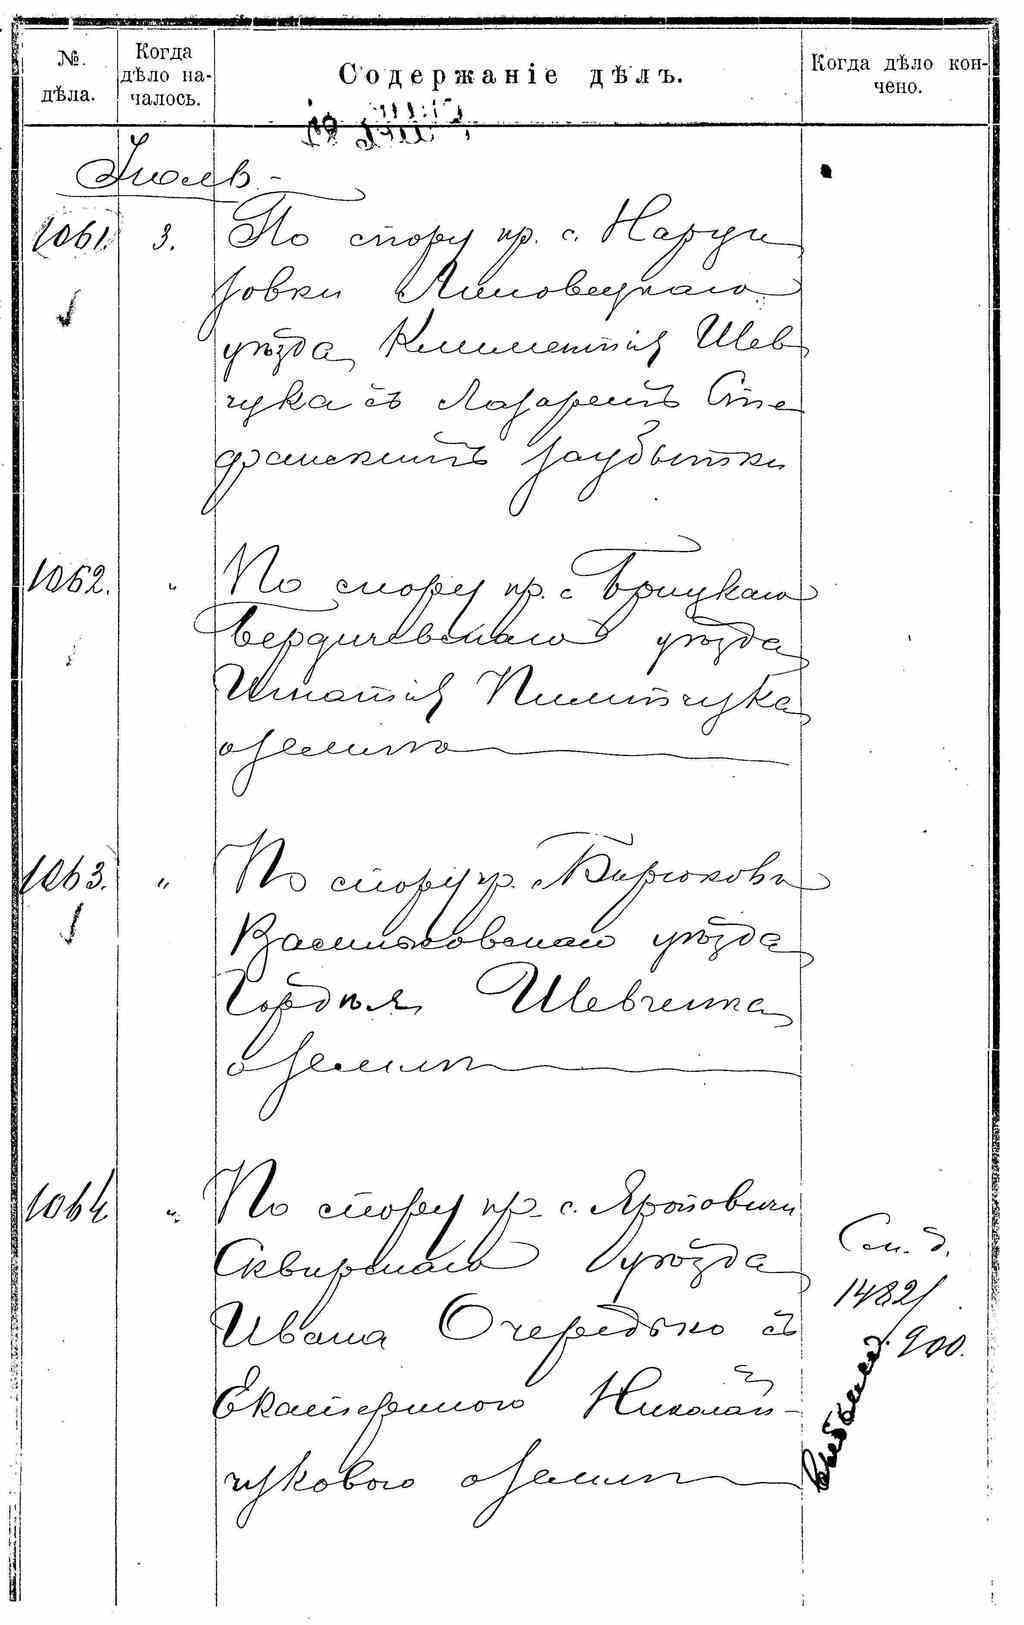 №. дѣла.
Когда дѣло началось.
Содержаніе дѣлъ.
Когда дѣло кончено.
Іюль
1061. 3. По спору кр. с. Нарци
зовки Липовецкаго
уѣзда Климентія Шев
чука съ Лазаремъ Сте
фанскимъ за убытки
1062. " По спору кр. с. Брицкаго
Бердичевскаго уѣзда
Игнатія Пилипчука
о землѣ
1063. " По спору кр. Бирюкова
Васильковскаго уѣзда
Гордѣя Шевченка
о землѣ
1064. " По спору кр. с. Яроповичи
Сквирскаго уѣзда
Ивана Очередько съ
Екатериною Николай-
чуковою о землѣ
См. д.
1482/
900.